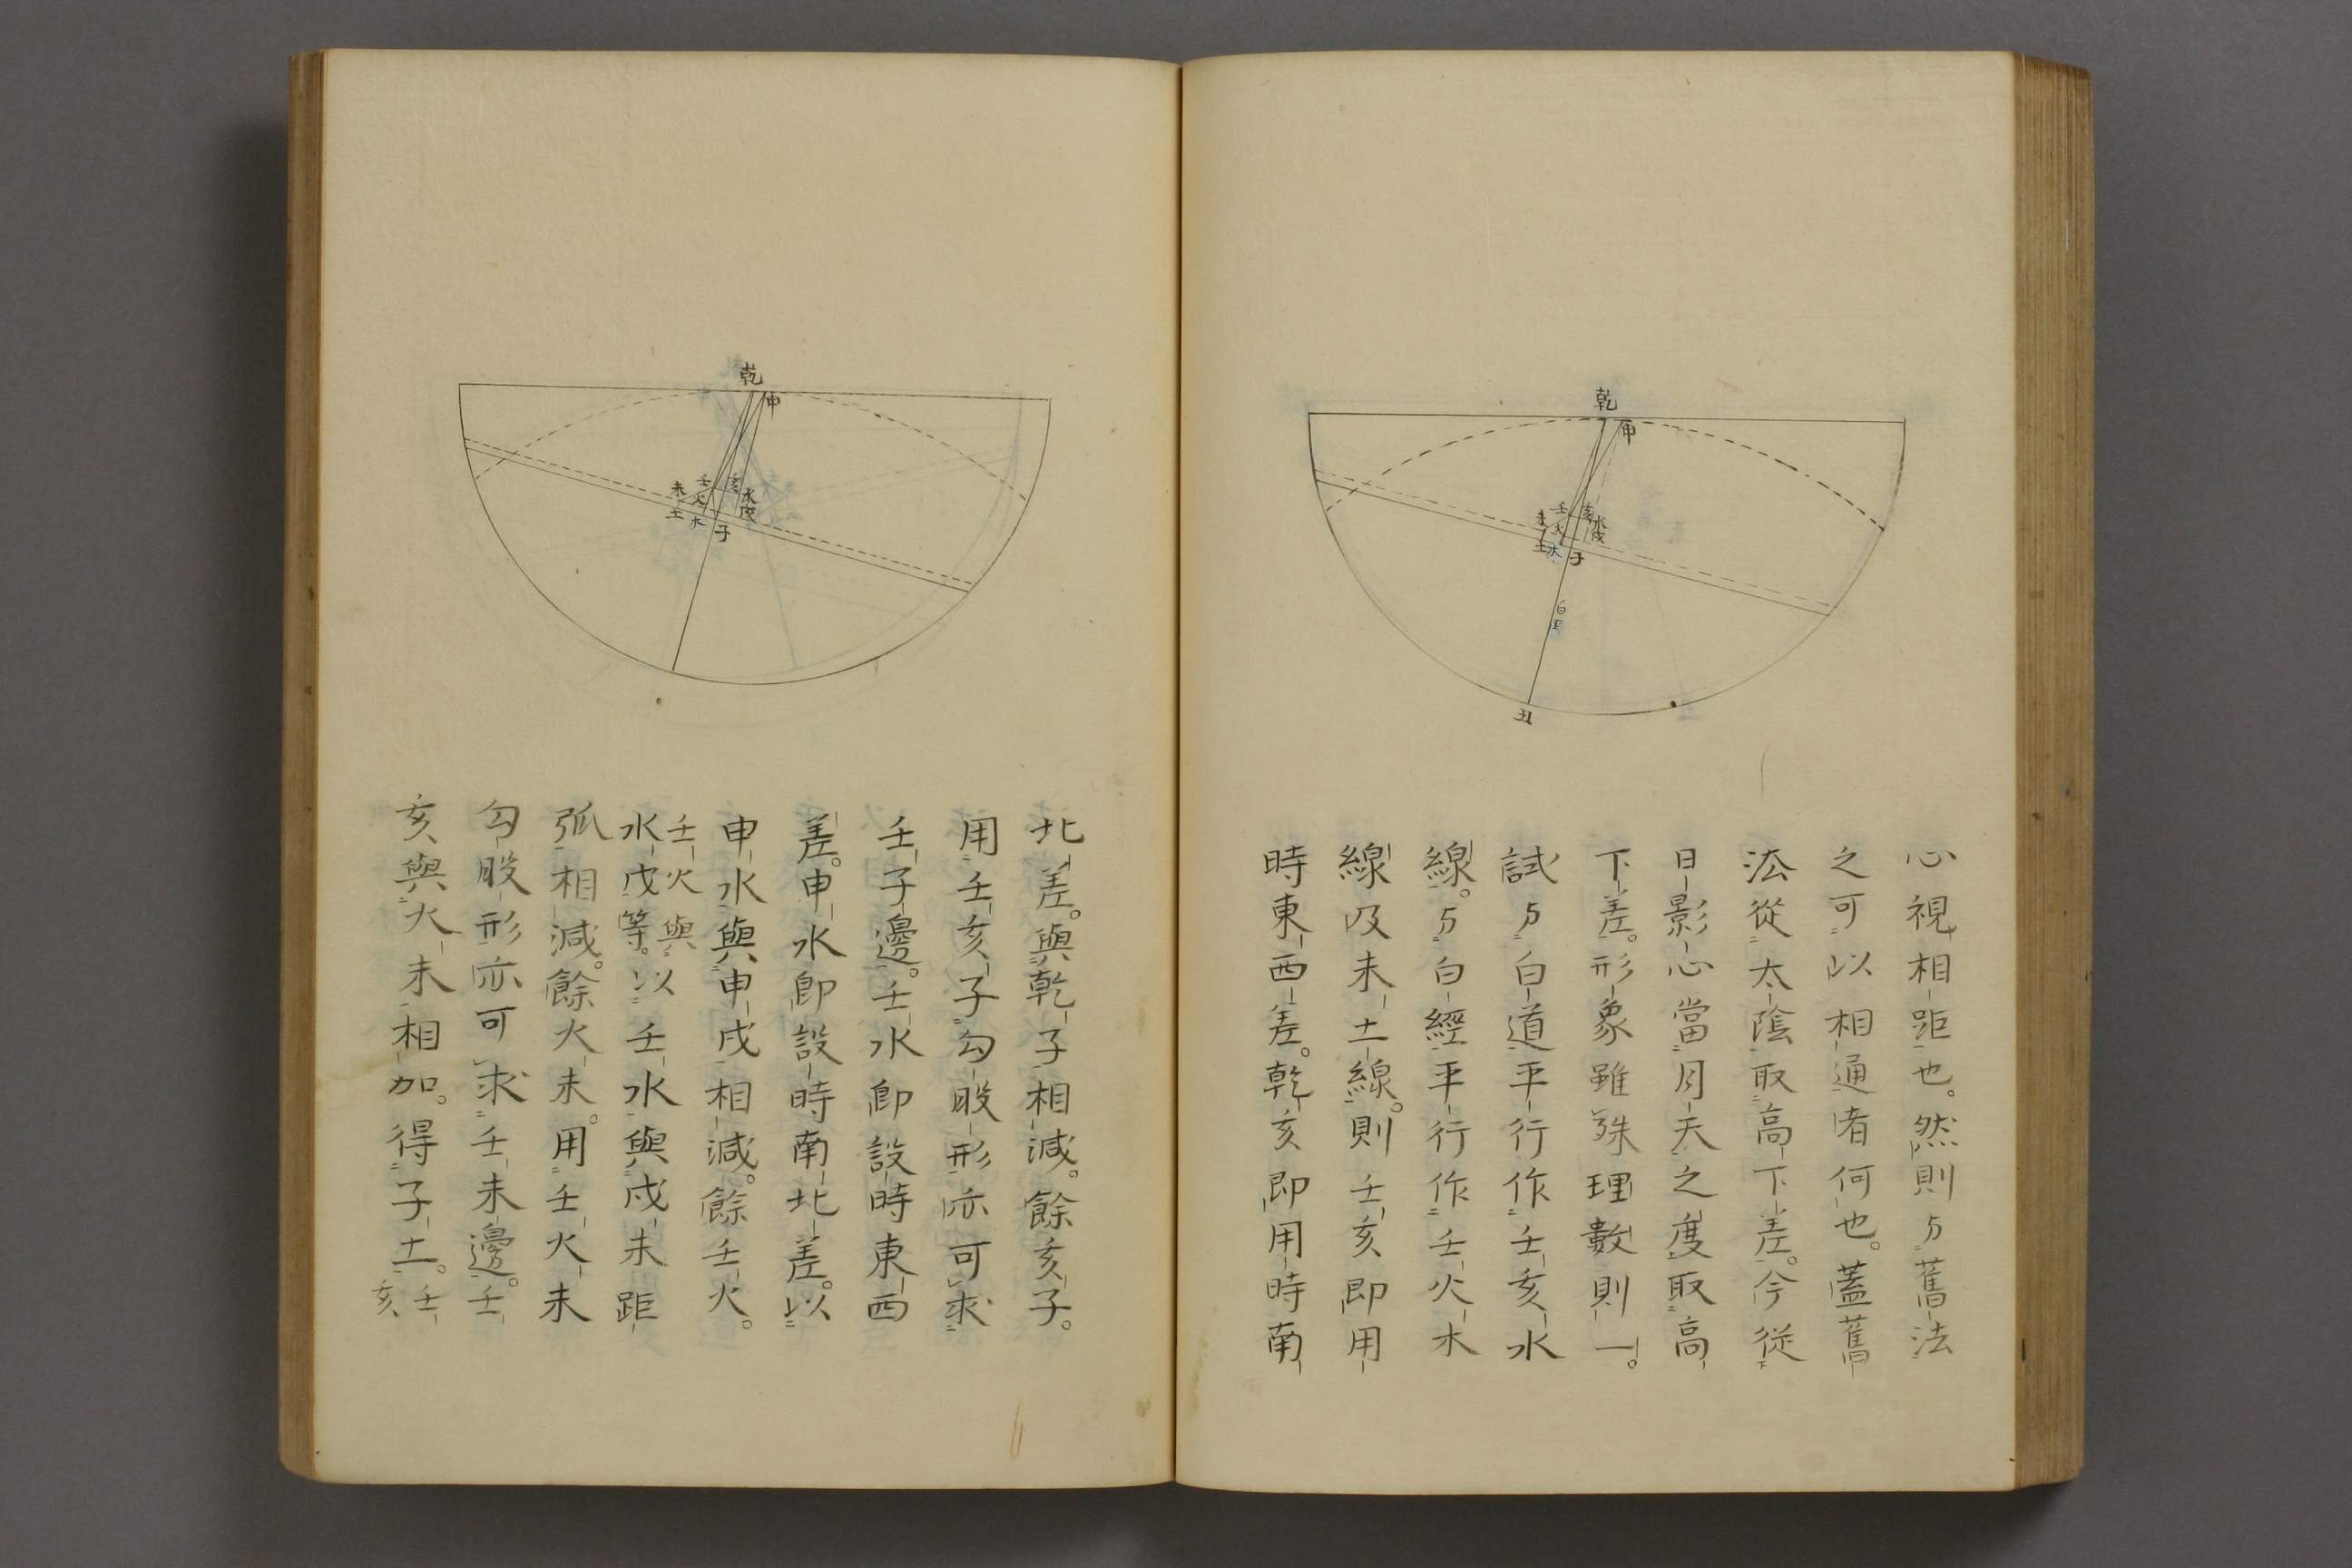 乾
申
壬
亥
未
火
水
戌
土
木
子
白
丑
心視相距也。然則与舊法
之可以相通者何也。蓋舊
法從太陰取高下差。今從
日影心當月天之度取高
下差。形象雖殊理數則一。
試与白道平行作壬亥水
線。与白經平行作壬火木
線及未土線。則壬亥即用
時東西差。乾亥即用時南
乾
申
壬
亥
未
火
水
戌
土
木
子
北差。與乾子相減。餘亥子。
用壬亥子勾股形亦可求
壬子邊。壬水卽設時東西
差。申水卽設時南北差。以
申水與申戌相減。餘壬火。
壬火與
水戌等。以壬水與戌未距
弧相減。餘火未。用壬火未
勾股形亦可求壬未邊。壬
亥與火未相加。得子土。壬
亥